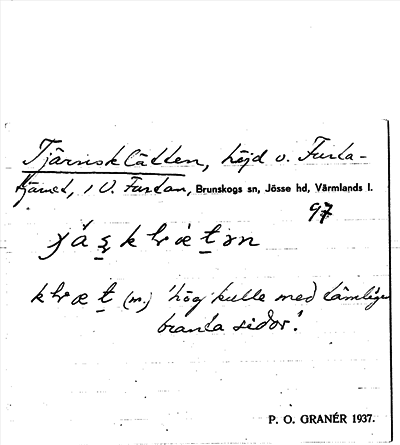 Tjärnsklätten, höjd v. Furta-
tjänet, i V. Furtan, Brunskogs sn, Jösse hd, Värmlands l.
97
klæt (m.) 'hög kulle med tämligen
branta sidor'.
P. O. GRANÉR 1937.